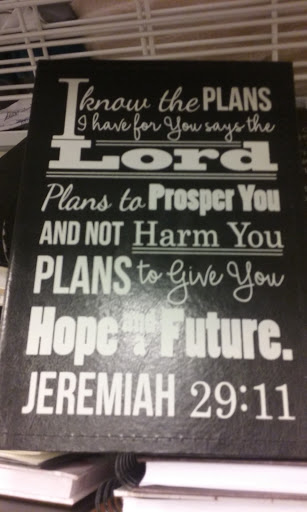 I know the PLANS
I have for You says the
Lord
Plans to Prosper You
AND NOT Harm You
PLANS to Give You
Hope and a Future.
JEREMIAH 29:11